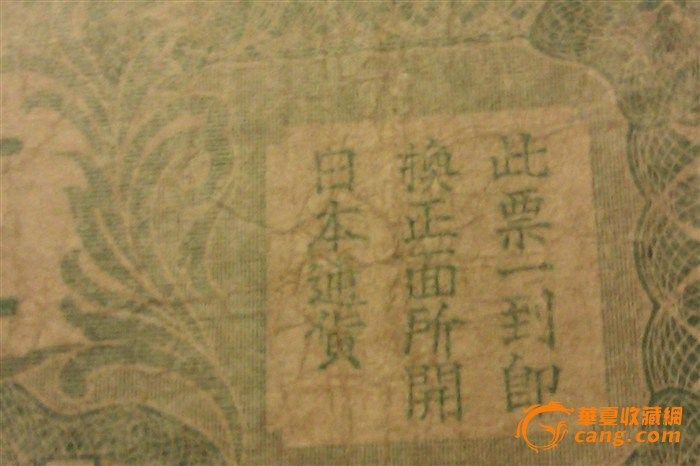 此票一到即
換正面所開
日本通貨
華夏收藏網
cang.com